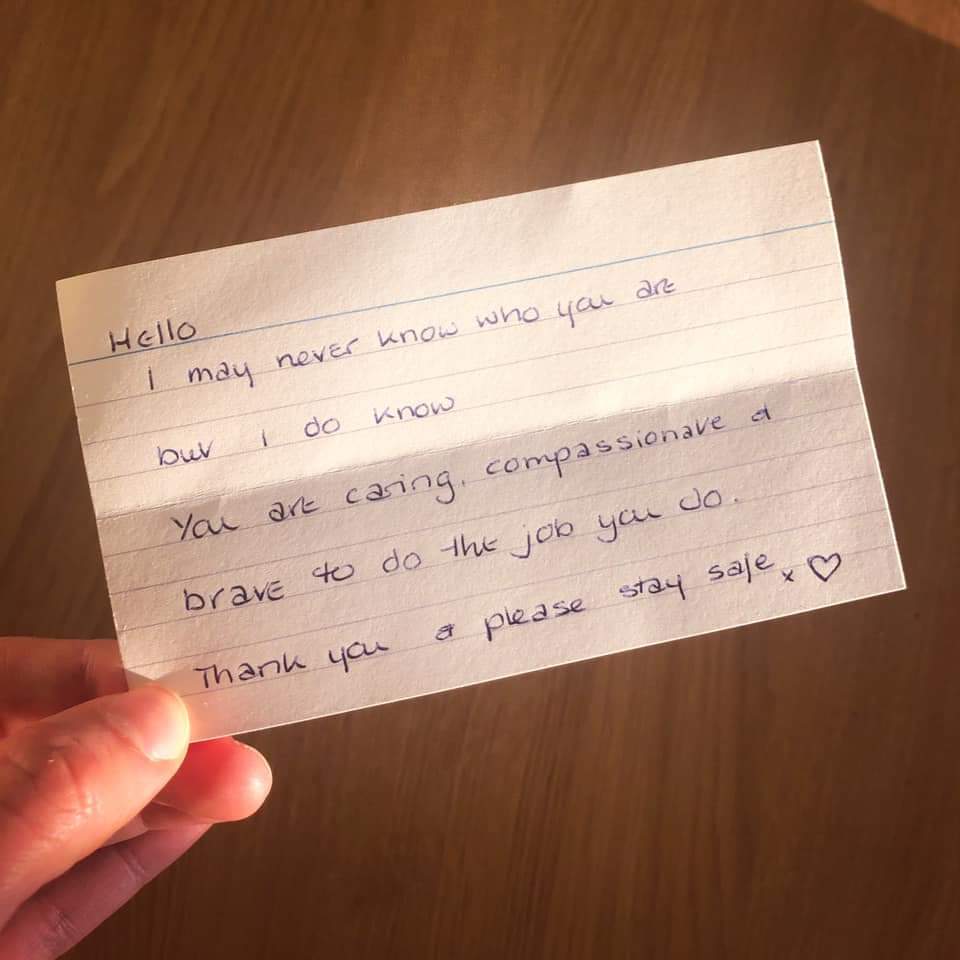 Hello
I may never know who you are
but I do know
You are caring, compassionate &
brave to do the job you do.
Thank you & please stay safe x ♡